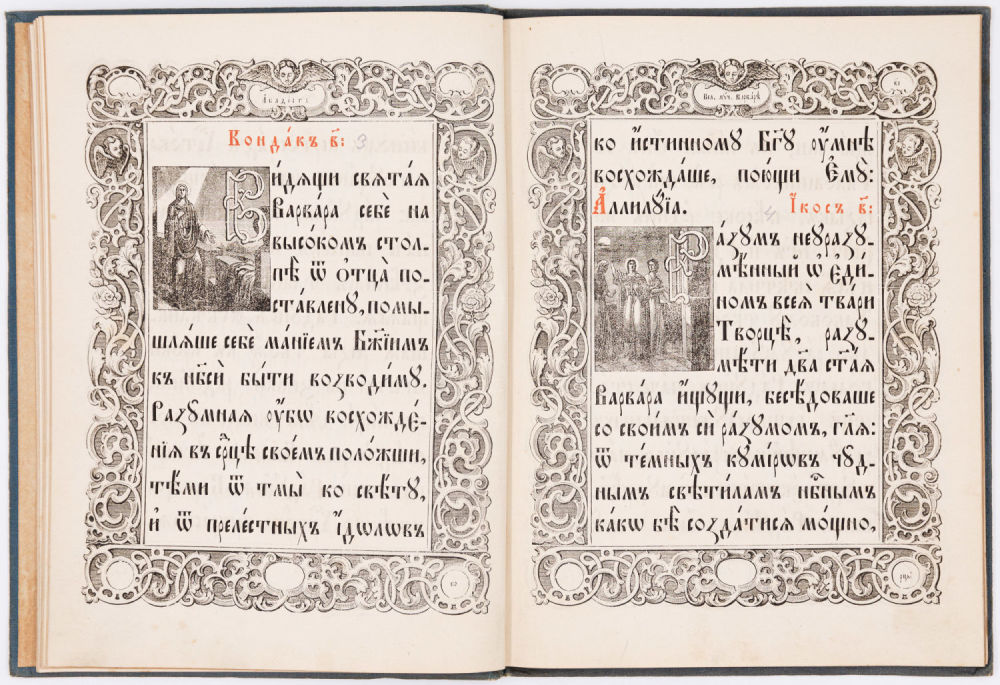 Акаѳїстъ
Конда́къ в҃:
3
Ви́дящи свята́я
Варва́ра себѐ на
высо́комъ стол-
пѣ̀ ѿ ѻтца̀ по-
ста́влену, помы-
шля́ше себѐ ма́нїемъ Бж҃їимъ
къ нб҃сѝ бы́ти возводи́му.
Разу́мная ᲂу҆́бѡ восхождє́-
нїя въ срⷣцѣ свое́мъ поло́жши,
тѣ́ми ѿ тмы̀ ко свѣ́ту,
и҆ ѿ преле́стныхъ і҆́дѡлѡвъ
Вел. мч҃. Варва́рѣ
ко и҆́стинному Бг҃у ᲂу҆́мнѣ
восхожда́ше, пою́щи є҆мꙋ̀:
А҆ллилꙋ́їа.
І҆́косъ в҃:
4
Ра́зумъ неуразу-
мѣ́нный ѡ҆ є҆ди́-
номъ всея̀ тва́ри
Творцѣ̀, разу-
мѣ́ти два̀ ст҃а́я
Варва́ра и҆́щущи, бесѣ́доваше
со свои́мъ сѝ ра́зумомъ, гл҃я:
ѿ те́мныхъ куми́рѡвъ чу́д-
нымъ свѣти́ламъ нбⷭ҇нымъ
ка́кѡ бѣ̀ созда́тися мо́щно,
рцы̀